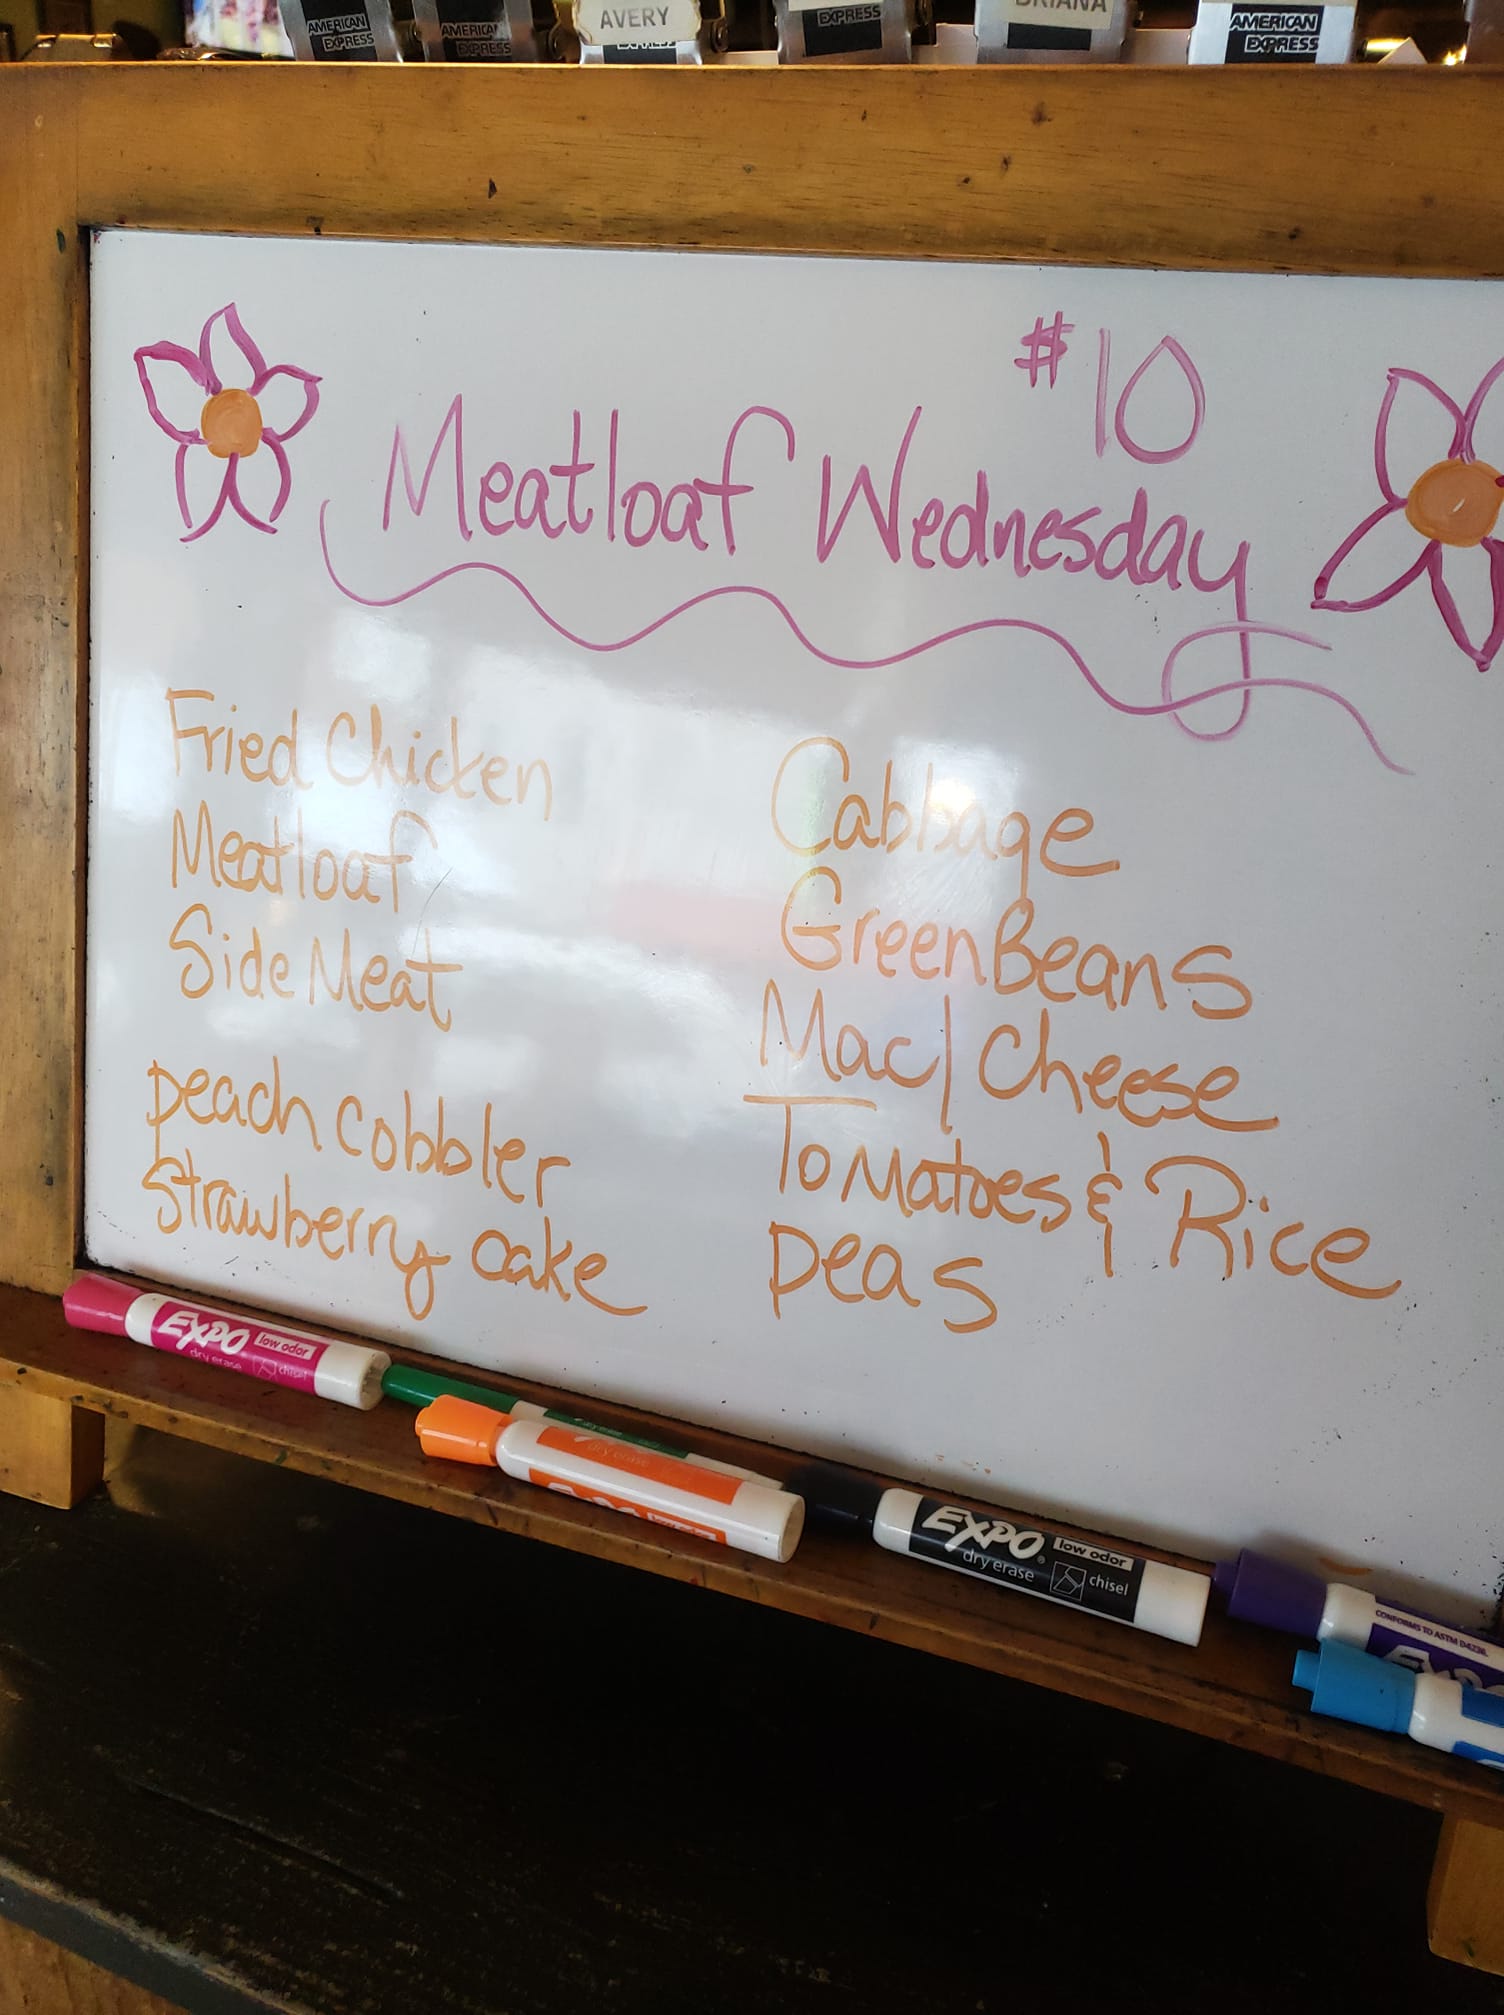 AMERICAN
EXPRESS
AMERICAN
EXPRESS
AVERY
EXPRESS
BRIANA
AMERICAN
EXPRESS
#10
Meatloaf Wednesday
Fried Chicken
Meatloaf
Side Meat
peach cobbler
Strawberry cake
Cabbage
Green Beans
Mac/Cheese
Tomatoes & Rice
peas
EXPO low odor
dry erase chisel
dry erase
dry erase
EXPO low odor
EXPO® low odor
dry erase chisel
CONFORMS TO ASTM D4236
EXPO